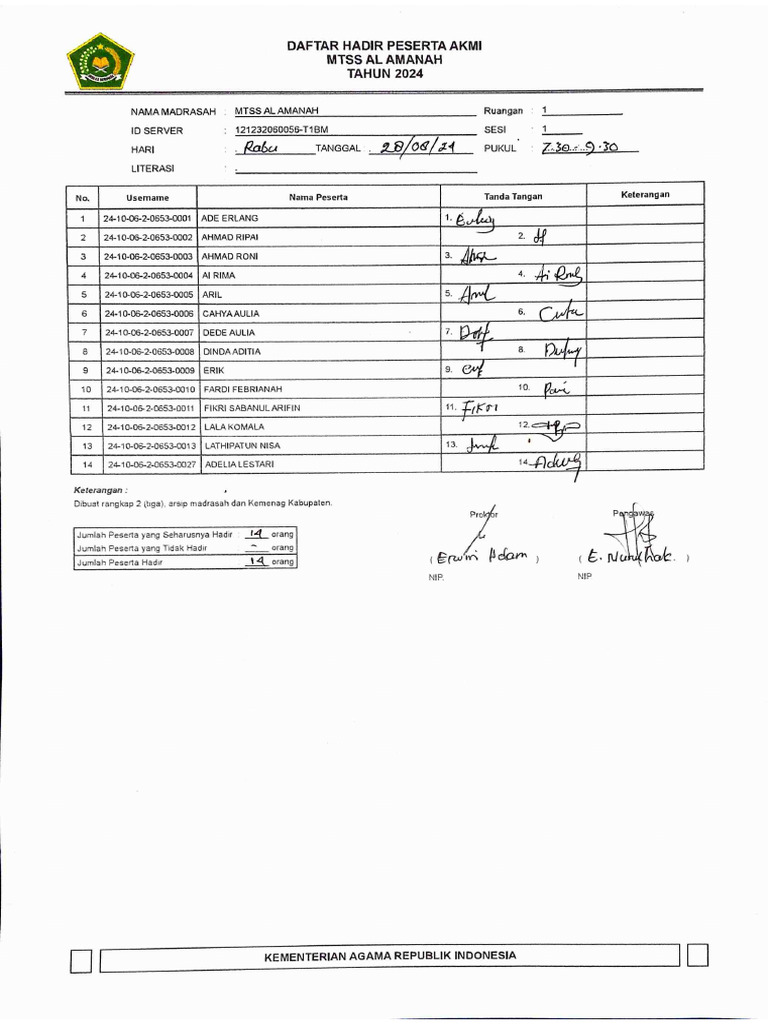 DAFTAR HADIR PESERTA AKMI
MTSS AL AMANAH
TAHUN 2024
NAMA MADRASAH : MTSS AL AMANAH Ruangan : 1
ID SERVER : 121232060056-T1BM SESI : 1
HARI : Rabu TANGGAL : 28/08/24 PUKUL : 7.30 - 9.30
LITERASI :
No. Username Nama Peserta Tanda Tangan Keterangan
1 24-10-06-2-0653-0001 ADE ERLANG 1.
2 24-10-06-2-0653-0002 AHMAD RIPAI 2.
3 24-10-06-2-0653-0003 AHMAD RONI 3.
4 24-10-06-2-0653-0004 AI RIMA 4.
5 24-10-06-2-0653-0005 ARIL 5.
6 24-10-06-2-0653-0006 CAHYA AULIA 6.
7 24-10-06-2-0653-0007 DEDE AULIA 7.
8 24-10-06-2-0653-0008 DINDA ADITIA 8.
9 24-10-06-2-0653-0009 ERIK 9.
10 24-10-06-2-0653-0010 FARDI FEBRIANAH 10.
11 24-10-06-2-0653-0011 FIKRI SABANUL ARIFIN 11. FIKRI
12 24-10-06-2-0653-0012 LALA KOMALA 12.
13 24-10-06-2-0653-0013 LATHIPATUN NISA 13.
14 24-10-06-2-0653-0027 ADELIA LESTARI 14.
Keterangan :
Dibuat rangkap 2 (tiga), arsip madrasah dan Kemenag Kabupaten.
Proktor Pengawas
Jumlah Peserta yang Seharusnya Hadir : 14 orang
Jumlah Peserta yang Tidak Hadir : - orang
Jumlah Peserta Hadir : 14 orang
( Erwin Adam ) ( E. )
NIP. NIP
KEMENTERIAN AGAMA REPUBLIK INDONESIA